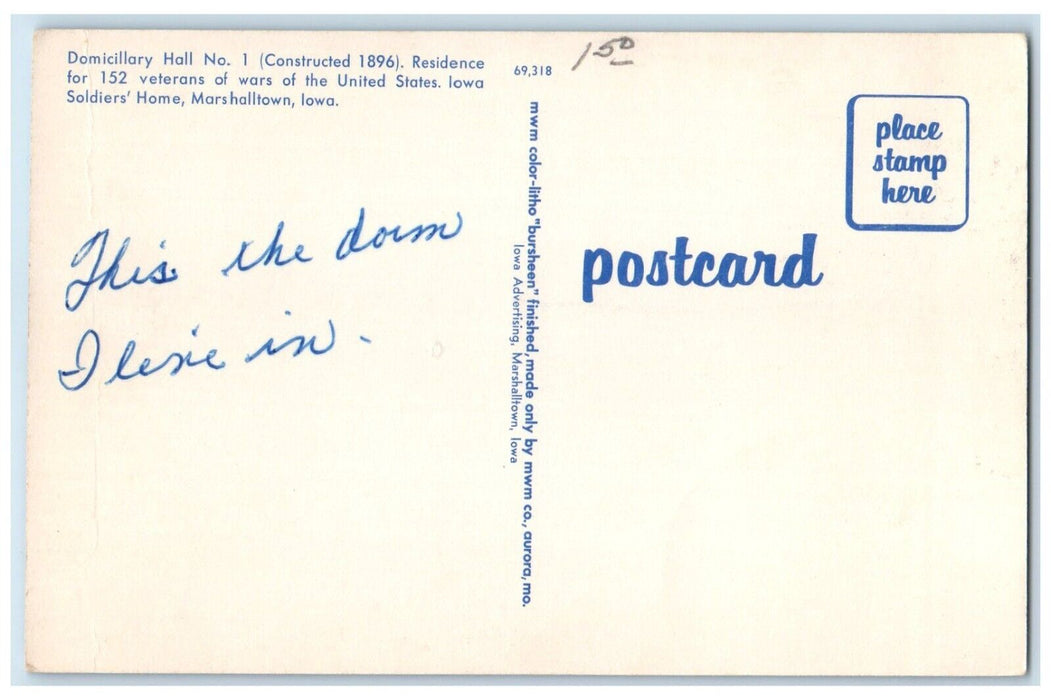 Domicillary Hall No. 1 (Constructed 1896). Residence
for 152 veterans of wars of the United States. Iowa
Soldiers' Home, Marshalltown, Iowa.
69,318
1 50
place
stamp
here
This the dorm
I live in.
postcard
mwm color-litho "bursheen" finished, made only by mwm co., aurora, mo.
Iowa Advertising, Marshalltown, Iowa